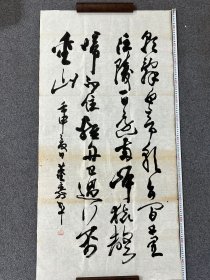 朝辞白帝彩云间千里
江陵一日还两岸猿声
啼不住轻舟已过万
重山 壬申夏 董寿平